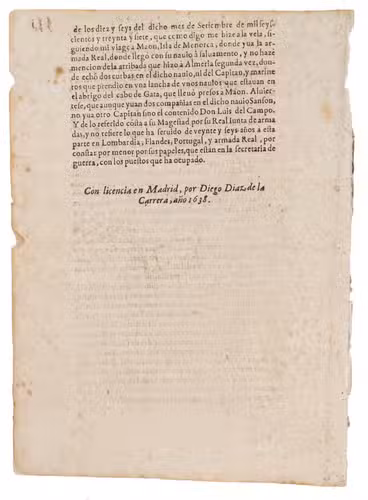 de los diez y seys del dicho mes de Setiembre de mil seys-
cientos y treynta y siete, que como digo me hize a la vela, si-
guiendo mi viage a Maon, Isla de Menorca, donde yua la ar-
mada Real, donde llegò con su nauio à saluamento, y no haze
mencion de la arribada que hizo a Almeria segunda vez, don-
de echò dos coruas en el dicho nauio, ni del Capitan, y marine
ros que prendio en vna lancha de vnos nauios que estauan en
el abrigo del cabo de Gata, que lleuò presos a Maon. Aluier-
tese, que aunque yuan dos compañias en el dicho nauio Sanson,
no yua otro Capitan sino el contenido Don Luis del Campo.
Y de lo referido costa a su Magestad por su Real Iunta de arma
das, y no refiere lo que ha seruido de veynte y seys años a esta
parte en Lombardia, Flandes, Portugal, y armada Real, por
constar por menor por sus papeles, que están en la secretaria de
guerra, con los puestos que ha ocupado.
Con licencia en Madrid, por Diego Diaz de la
Carrera, año 1638.